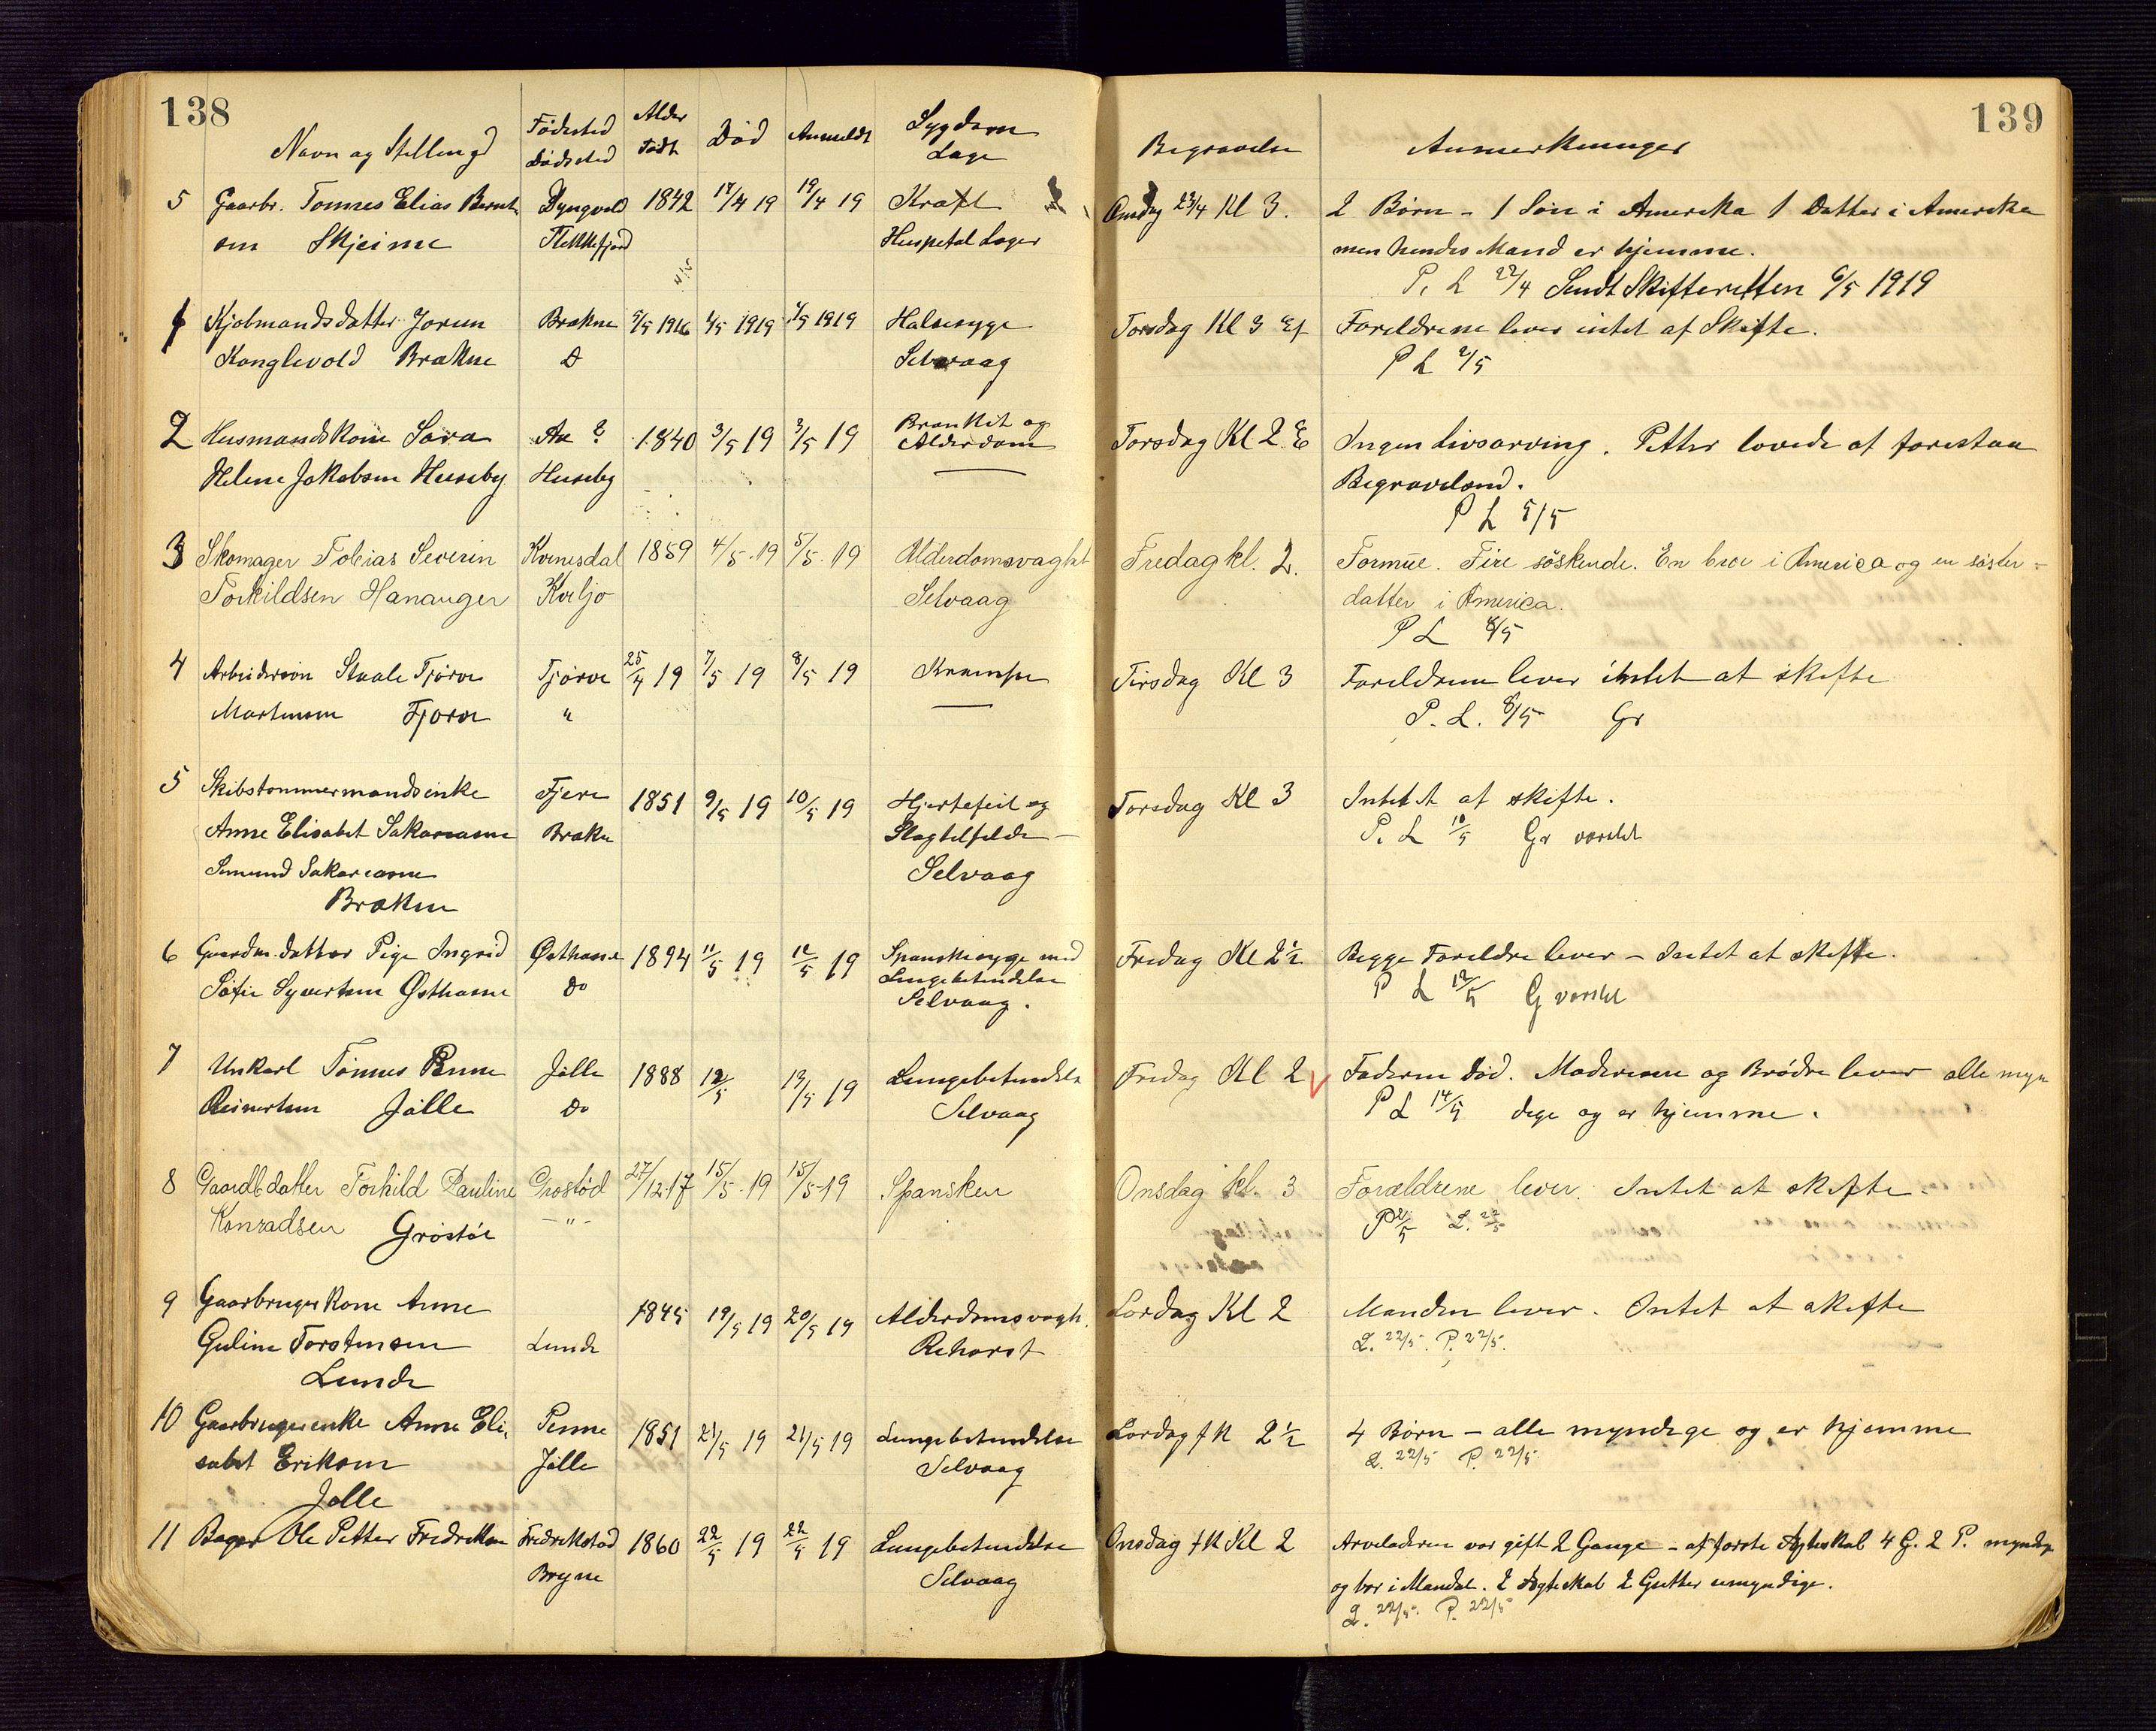 138
Navn og Stelling
Fødested
Dødsted
Alder
Født
Død
Anmeldt
Sygdom
Læge
5 Gaarbr. Tønnes Elias Bernt Dyngvold 1842 17/4 19 19/4 19 Kræft
sen Skjeime Flekkefjord Hospetal Læger
1 Kjøbmandsdatter Jorun Brækne 5/5 1916 1/5 1919 1/5 1919 Halsesyge
Konglevold Brækne D Selvaag
2 Husmandskone Sara Aa ? 1840 3/5 19 3/5 19 Bronkit og
Alderdom
Helene Jakobsen Huseby Huseby
3 Skomager Tobias Severin Kvinesdal 1859 4/5 19 5/5 19 Alderdomsvaghet
Torkildsen Hananger Kviljo Selvaag
4 Arbeidersøn Staale Tjørve Tjørve 25/4 19 7/5 19 8/5 19 Krampe
Martensen Tjørve "
5 Skibstømmermandsenke Tjere 1851 9/5 19 10/5 19 Hjertefeil og
Anne Elisabet Sakariasen Brækne Slagtelfelde
Sakariasen Selvaag
Brækne
6 Gaardm.datter Pige Ingrid Østhasse 1894 11/5 19 12/5 19 Spanskesyge med
Lungebetendelse
Sofie Syvertsen Østhasse Do Selvaag.
7 Unkarl Tønnes Penne Jølle 1888 12/5 13/5 19 Lungebetendelse
Reinertsen Jølle Do Selvaag
8 Gaardb.datter Torhild Pauline Grostød 27/12.17 15/5.19 15/5-19 Spansken
Konradsen Grøstøl - " -
9 Gaarbruger Kone Anne 1845 19/5 19 20/5 19 Alderdomsvagh.
Guline Torstensen Lunde Rehorst
Lunde
10 Gaarbrugerenke Anne Eli, Penne 1851 21/5 19 21/5 19 Lungebetendelse
sabet Eriksen Jølle Selvaag
Jølle
11 Bager Ole Petter Fredriksen Fredrikstad 1860 22/5 19 22/5 19 Lungebetendelse
Bryne Selvaag
139
Begravelse Anmerkninger
Onsdag 23/4 Kl 3. 2 Børn - 1 Søn i Amerika 1 Datter i Amerika
men hendes Mand er hjemme.
P. L 22/4 Sendt Skifteretten 6/5 1919
Torsdag Kl 3 Ef Foreldrene lever intet at Skifte.
P L 2/5
Torsdag Kl 2 E Ingen Livsarving. Petter lovede at forestaa
Begravelsend.
P L 5/5
Fredag kl. 2. Formue. Fire søskende. En bror i America og en søster=
datter i America.
P L 8/5
Tirsdag Kl 3 Foreldrene lever intet at skifte
P. L. 8/5 Gr
Torsdag Kl 3 Intet at skifte.
P. L 10/5 Gr varslet
Fredag Kl 2½ Begge Foreldre lever - Intet at skifte.
P L 12/5 G varslet
Fredag Kl 2 Faderen død. Moderen og Brødre lever alle myn
P L 14/5 dige og er hjemme.
Onsdag kl. 3 Forældrene lever. Intet at skifte.
P 21/5 L. 22/5
Lørdag Kl 2 Manden lever. Intet at skifte
L. 22/5. P. 22/5.
Lørdag fk 2½ 4 Børn - alle myndige og er hjemme
L. 22/5 P. 22/5
Onsdag fk Kl 2 Arveladeren var gift 2 Gange - af første Ægteskab 4 G. 2 P. myndige
og bor i Mandal. 2 Ægteskab 2 Gutter umyndige.
L. 22/5. P. 22/5